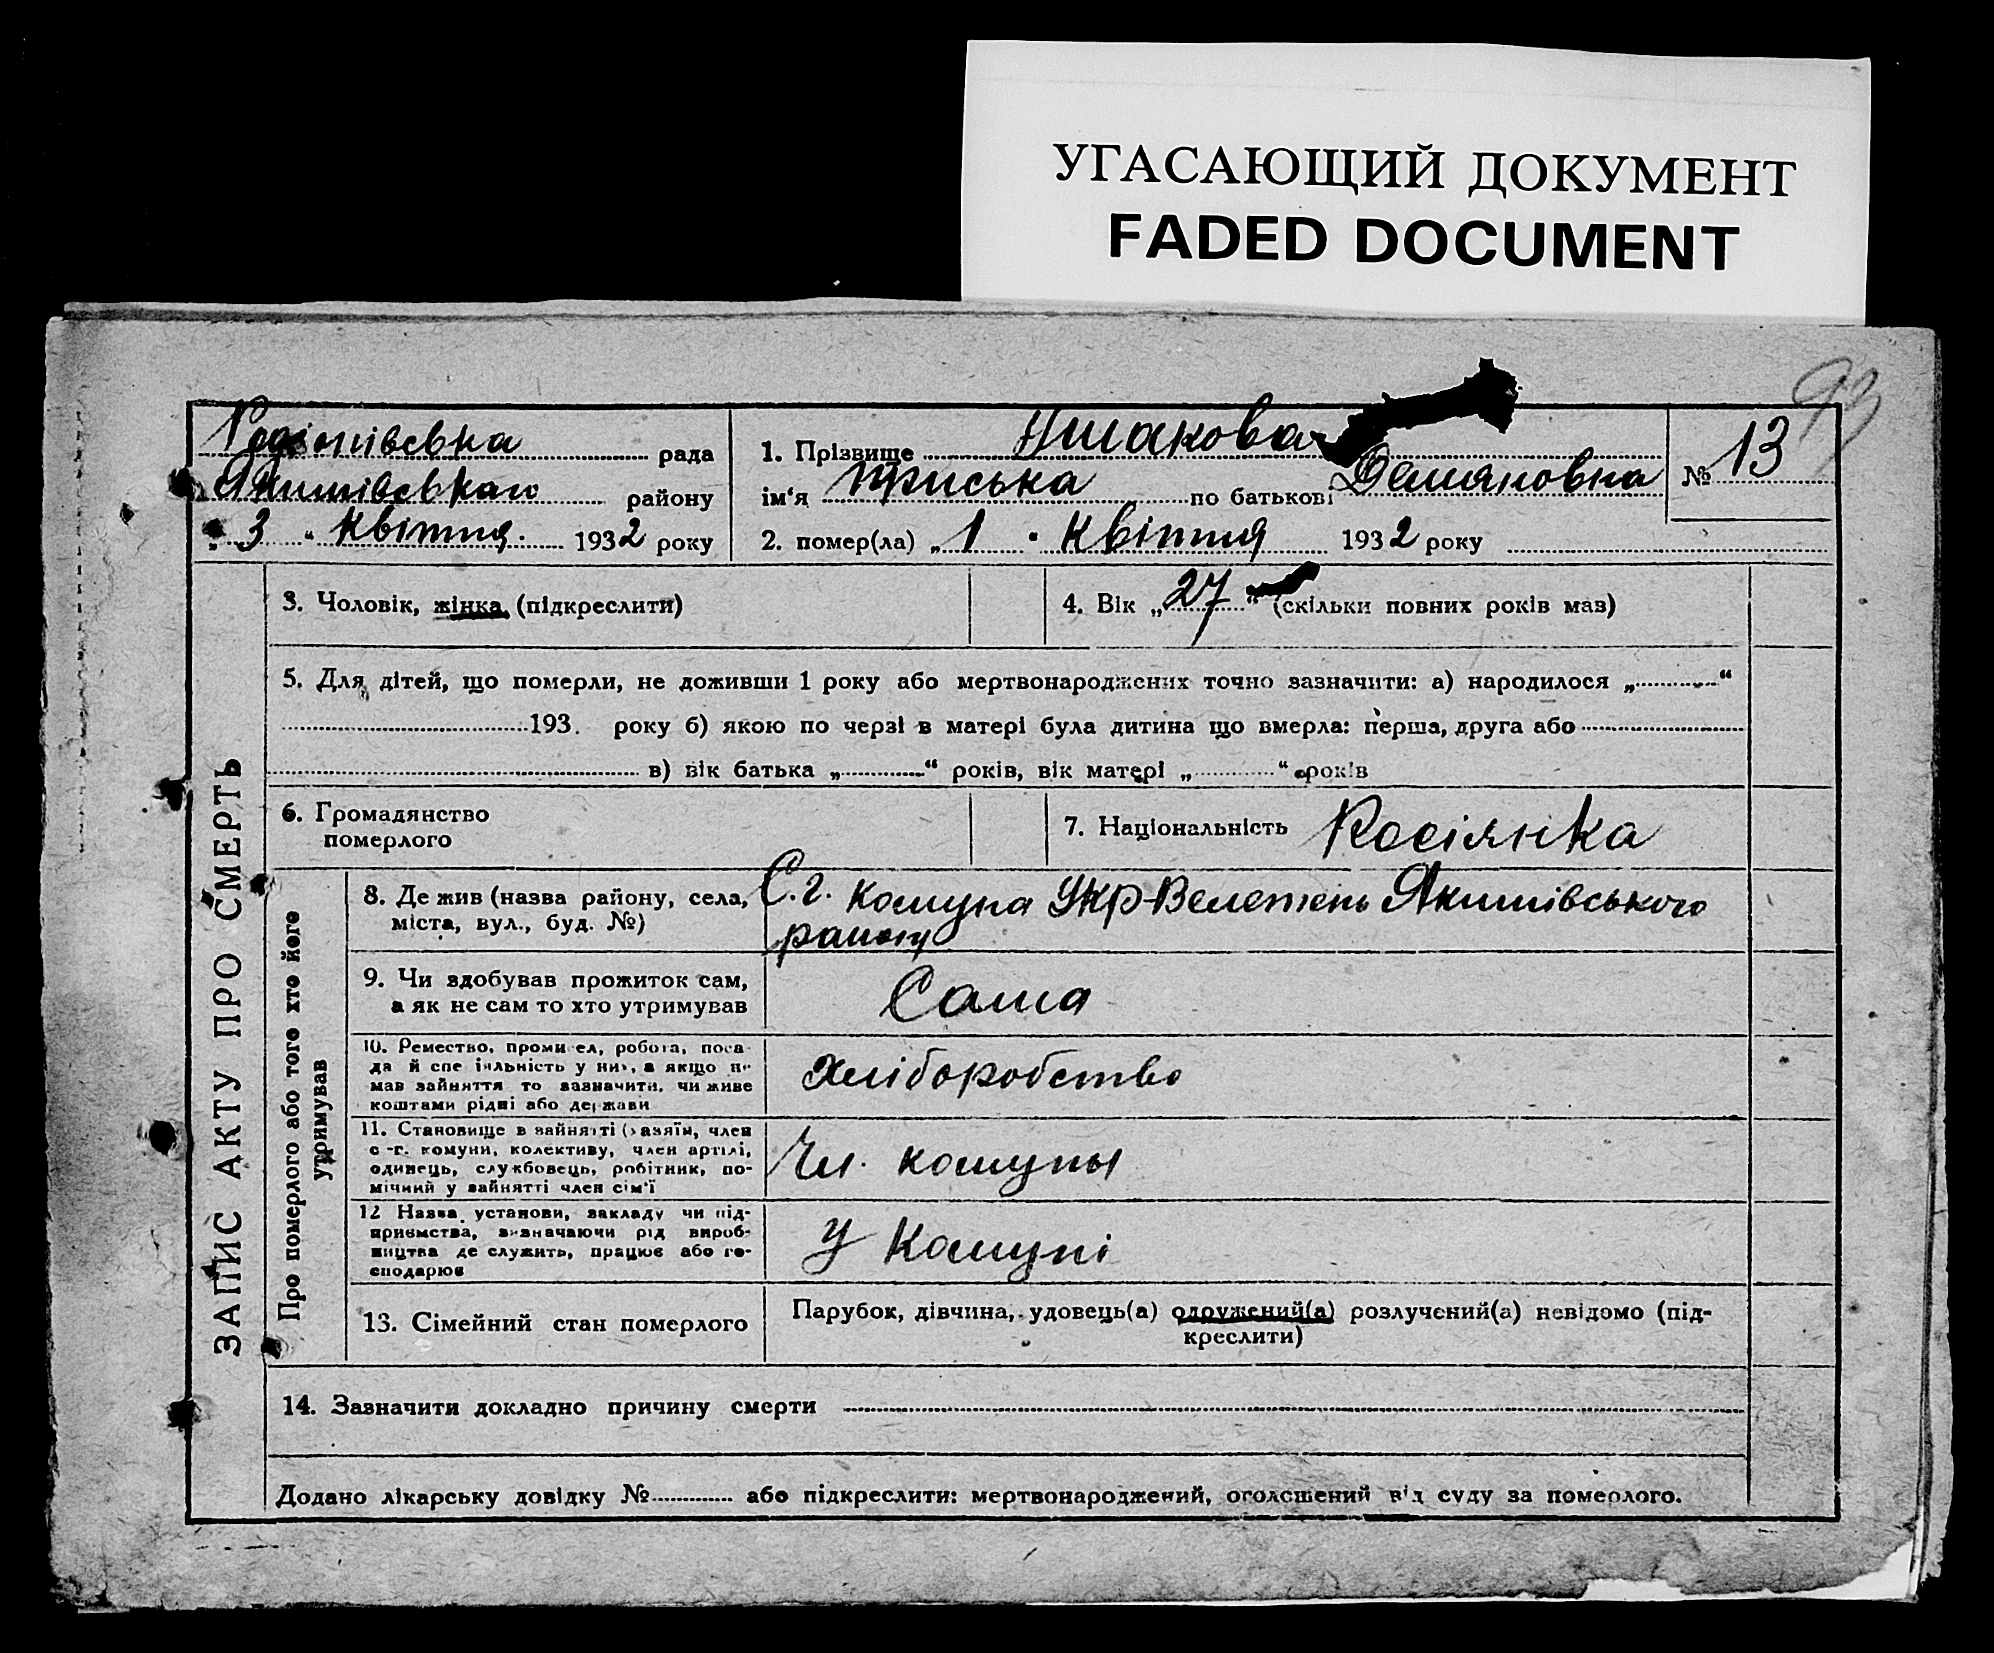 УГАСАЮЩИЙ ДОКУМЕНТ
FADED DOCUMENT
93
Родіонівська рада
Якимівського району
„ 3 “ Квітня. 1932 року
1. Прізвище Ушакова
ім‘я Приська по батькові Демяновна
№ 13
2. помер(ла) „ 1 “ Квітня 1932 року
ЗАПИС АКТУ ПРО СМЕРТЬ
3. Чоловік, жінка (підкреслити)
4. Вік „ 27 “ (скільки повних років мав)
5. Для дітей, що померли, не доживши 1 року або мертвонароджених точно зазначити: а) народилося „ “
193. року б) якою по черзі в матері була дитина що вмерла: перша, друга або
в) вік батька „ “ років, вік матері „ “ років
6. Громадянство
померлого
7. Національність Росіянка
Про померлого або того хто його
утримував
8. Де жив (назва району, села,
міста, вул., буд. №)
С.г. комуна Укр-Велетень Якимівського
району
9. Чи здобував прожиток сам,
а як не сам то хто утримував
Сама
10. Ремество, промисел, робота, поса-
да й спеціяльність у них, а якщо не
мав зайняття то зазначити, чи живе
коштами рідні або держави
Хліборобство
11. Становище в зайнятті (хазяїн, член
с.-г. комуни, колективу, член артілі,
одинець, службовець, робітник, по-
мічний у зайнятті член сім‘ї
Чл. комуны
12 Назва установи, закладу чи під-
приємства, визначаючи рід вироб-
ництва де служить, працює або го-
сподарює
У Комуні
13. Сімейний стан померлого
Парубок, дівчина, удовець(а) одружений(а) розлучений(а) невідомо (під-
креслити)
14. Зазначити докладно причину смерти
Додано лікарську довідку № або підкреслити: мертвонароджений, оголошений від суду за померлого.